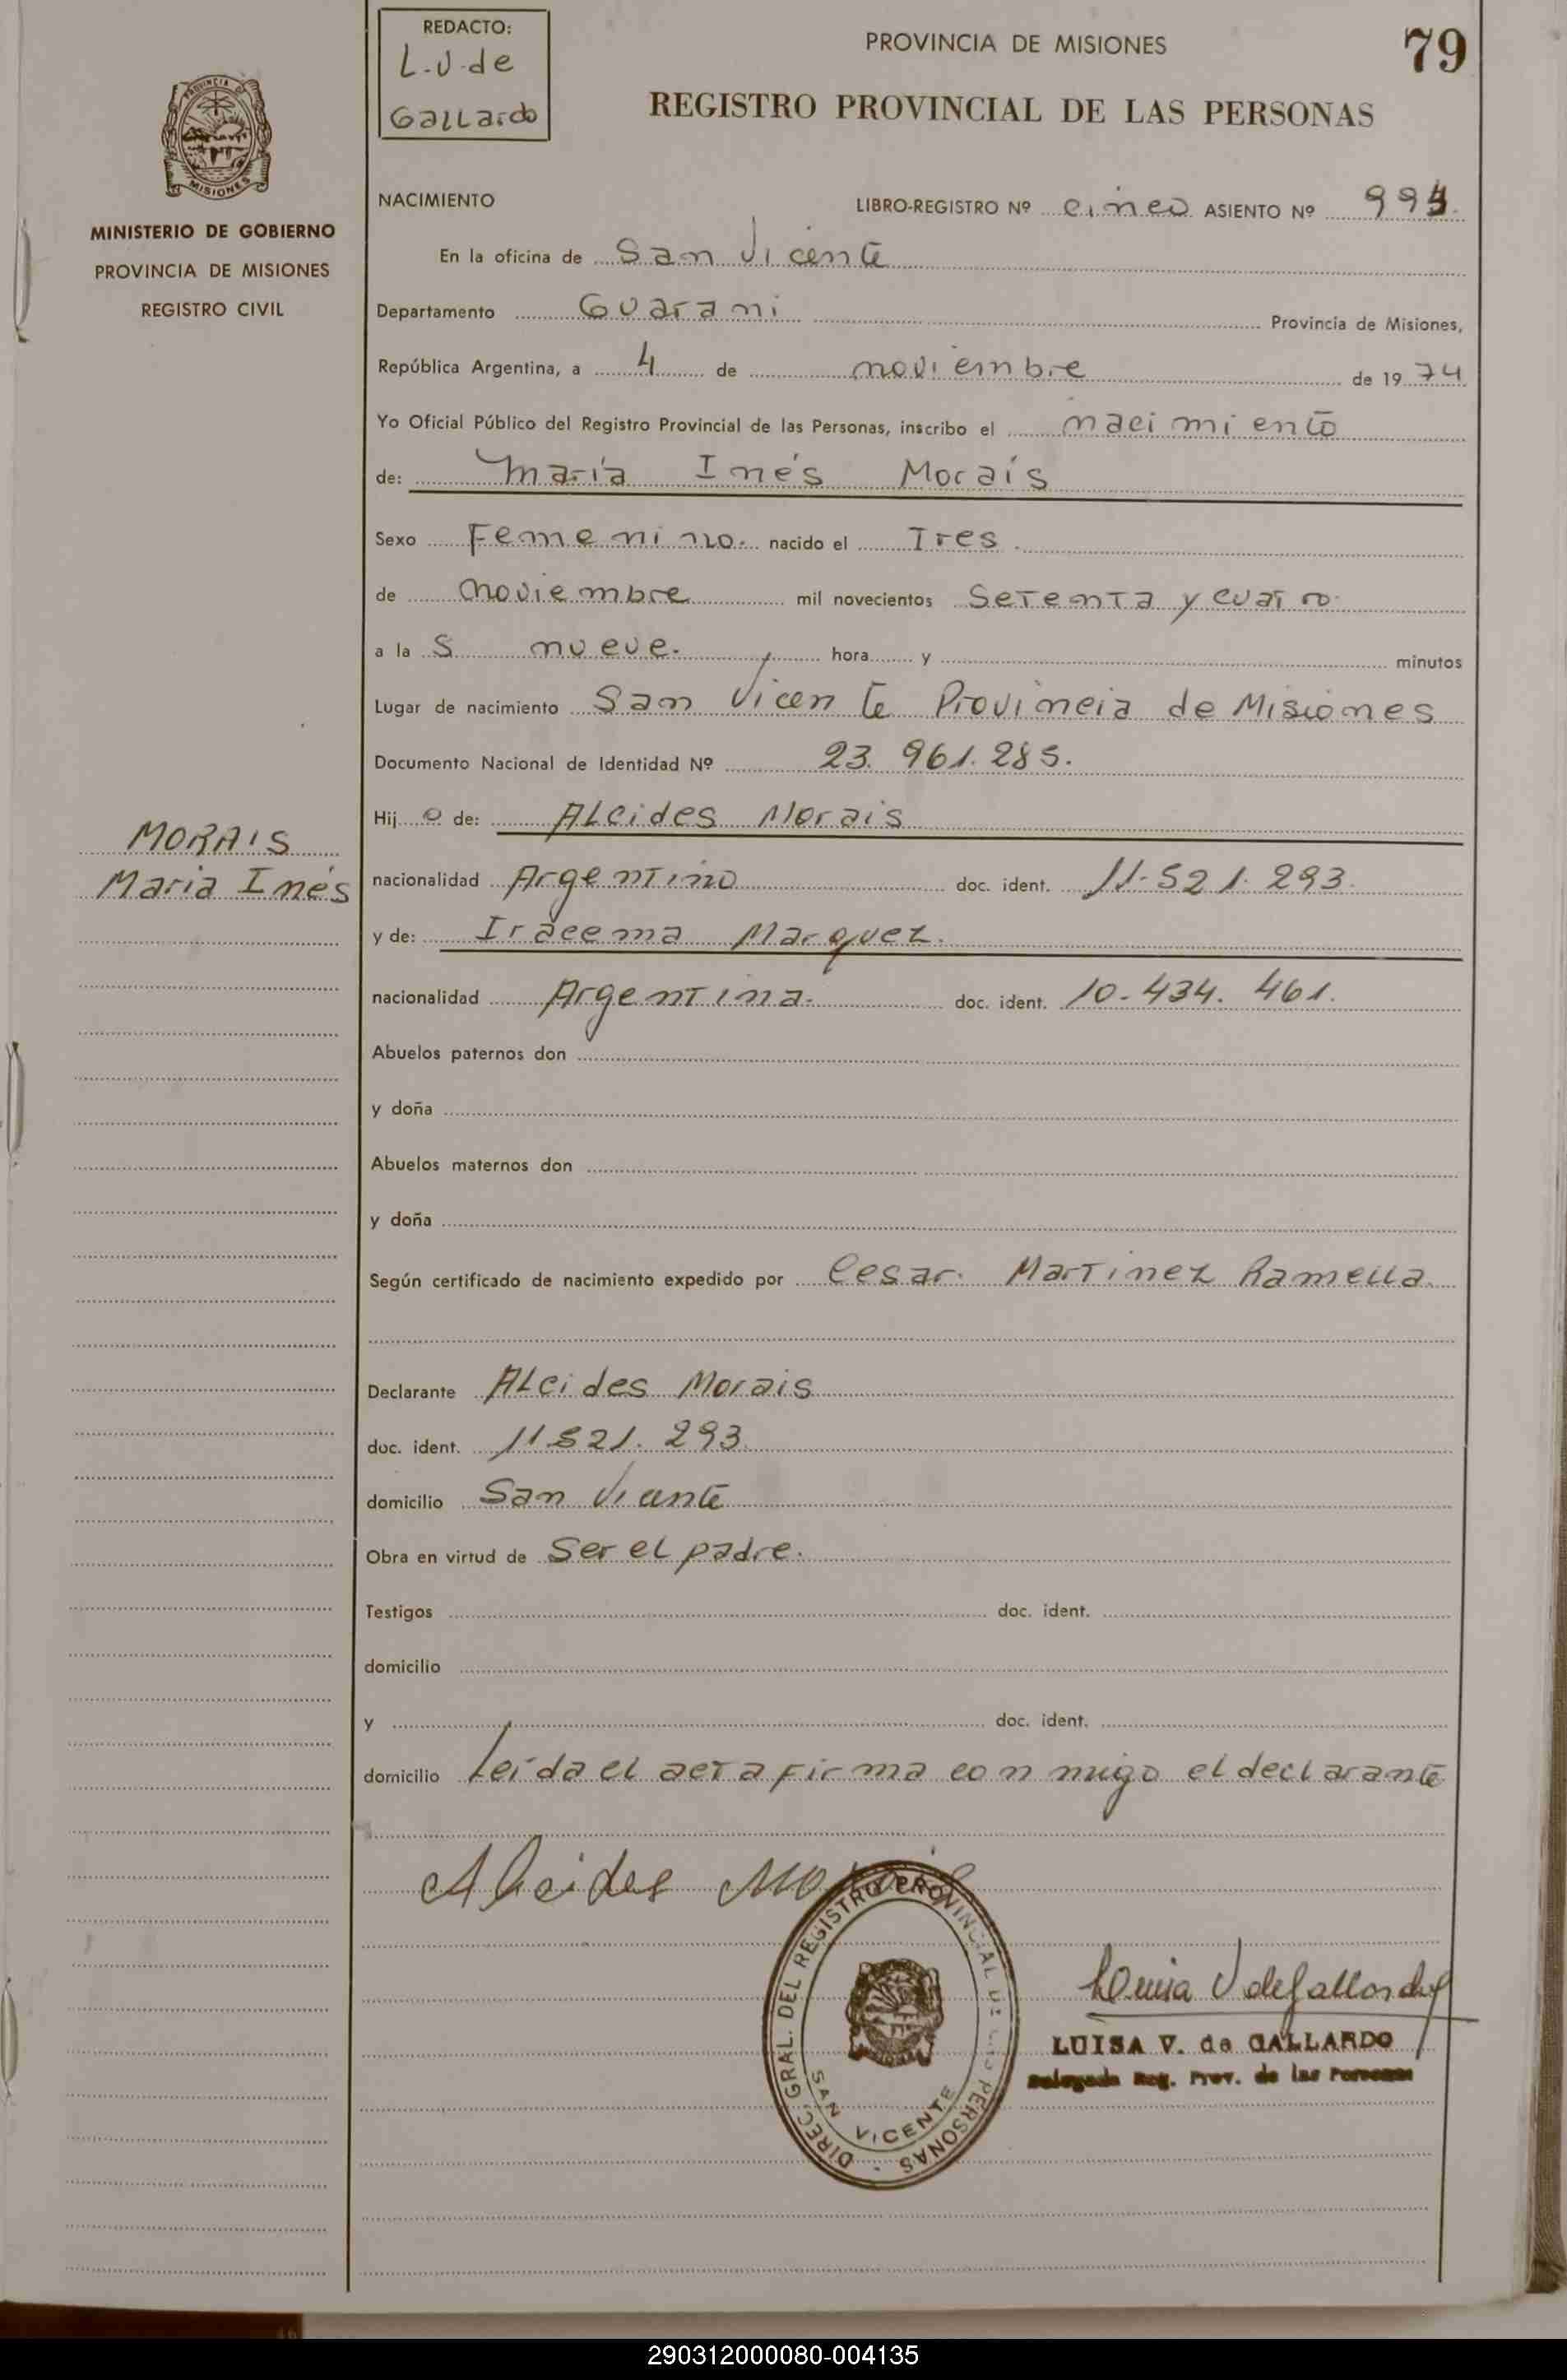 REDACTO:
L.V. de
Gallardo
PROVINCIA DE MISIONES
79
REGISTRO PROVINCIAL DE LAS PERSONAS
PROVINCIA DE MISIONES
MINISTERIO DE GOBIERNO
PROVINCIA DE MISIONES
REGISTRO CIVIL
NACIMIENTO LIBRO-REGISTRO Nº cinco ASIENTO Nº
En la oficina de San Vicente
Departamento Guarani Provincia de Misiones,
República Argentina, a 4 de noviembre de 1974
Yo Oficial Público del Registro Provincial de las Personas, inscribo el nacimiento
de: María Inés Morais
Sexo Femenino. nacido el Tres.
de noviembre mil novecientos Setenta y cuatro
a las nueve. hora y minutos
Lugar de nacimiento San Vicente Provincia de Misiones
Documento Nacional de Identidad Nº 23.961.285.
Hijo de: Alcides Morais
MORAIS
Maria Inés
nacionalidad Argentino doc. ident. 11.521.293.
y de: Iracema Marquez.
nacionalidad Argentina. doc. ident. 10.434.461.
Abuelos paternos don
y doña
Abuelos maternos don
y doña
Según certificado de nacimiento expedido por Cesar. Martinez Ramella.
Declarante Alcides Morais
doc. ident. 11.521.293.
domicilio San Vicente
Obra en virtud de Ser el padre.
Testigos doc. ident.
domicilio
y doc. ident.
domicilio Leída el acta firma con migo el declarante
Alcides Morais
DIREC. GRAL. DEL REGISTRO PROVINCIAL DE LAS PERSONAS -
SAN VICENTE
Luisa V de Gallardo
LUISA V. de GALLARDO
Delegada Reg. Prov. de las Personas
290312000080-004135